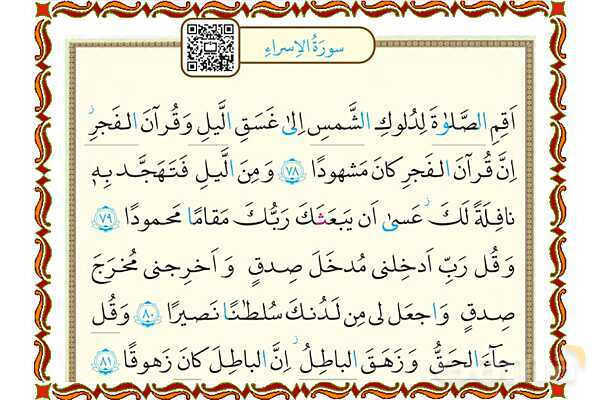 سورَةُ الاِسراءِ
اَقِمِ الصَّلوٰةَ لِدُلوكِ الشَّمسِ اِلىٰ غَسَقِ الَّيلِ وَ قُرآنَ الفَجرِ ۖ
اِنَّ قُرآنَ الفَجرِ كانَ مَشهودًا ﴿۷۸﴾ وَ مِنَ الَّيلِ فَتَهَجَّد بِهٖ
نافِلَةً لَكَ ۖ عَسىٰ اَن يَبعَثَكَ رَبُّكَ مَقامًا مَحمودًا ﴿۷۹﴾
وَ قُل رَبِّ اَدخِلنى مُدخَلَ صِدقٍ وَ اَخرِجنى مُخرَجَ
صِدقٍ وَ اجعَل لى مِن لَدُنكَ سُلطٰنًا نَصيرًا ﴿۸۰﴾ وَ قُل
جآءَ الحَقُّ وَ زَهَقَ الباطِلُ ۚ اِنَّ الباطِلَ كانَ زَهوقًا ﴿۸۱﴾